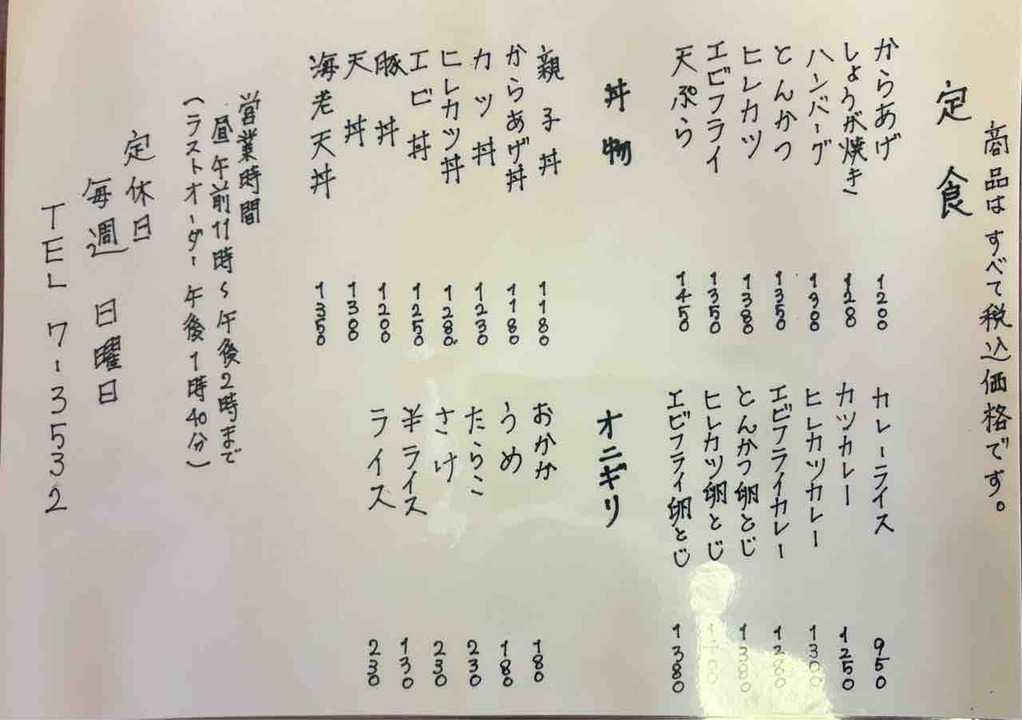 商品はすべて税込価格です。
定食
からあげ 1200
しょうが焼き
ハンバーグ
とんかつ 1350
ヒレカツ 1380
エビフライ 1350
天ぷら 1450
カレーライス 950
カツカレー 1250
ヒレカツカレー 1300
エビフライカレー 1280
とんかつ卵とじ
ヒレカツ卵とじ
エビフライ卵とじ 1380
丼物
親子丼 1180
からあげ丼 1180
カツ丼 1230
ヒレカツ丼 1280
エビ丼 1250
豚丼 1200
天丼
海老天丼 1350
オニギリ
おかか 180
うめ 180
たらこ 230
さけ 230
半ライス 130
ライス 230
営業時間
昼午前11時〜午後2時まで
(ラストオーダー午後1時40分)
定休日
毎週 日曜日
TEL 7-3532